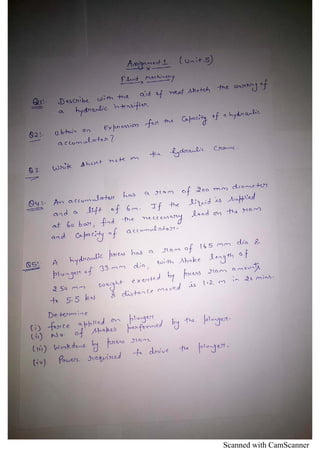 Assignment 1 (Unit-5)
Fluid Machinery
Q1: Describe with the aid of neat sketch the working of
a hydraulic intensifier.
Q2: Obtain an Expression for the Capacity of a hydraulic
accumulator?
Q3 Write short note on the hydraulic Crane.
Q4:- An accumulator has a ram of 200 mm diameter
and a lift of 6m. If the liquid is supplied
at 60 bar, find the necessary load on the ram
and Capacity of accumulator.
Q5: A hydraulic press has a ram of 165 mm dia &
plunger of 35 mm dia, with stroke length of
250 mm weight exerted by press ram amounts
to 5.5 kN & distance moved is 1.2 m in 22 mins.
Determine
(i) force applied on plunger
(ii) No of strokes performed by the plunger.
(iii) Workdone by press ram
(iv) Power required to drive the plunger.
Scanned with CamScanner